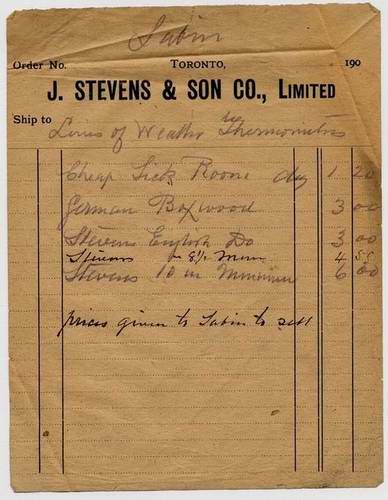 Sabin
Order No. TORONTO, 190
J. STEVENS & SON CO., LIMITED
Ship to Lines of Weather Thermometers
Cheap Sick Room doz 1 20
German Boxwood 3 00
Stevens English Do 3 00
Stevens 8½ 4
Stevens 10 in 6 00
prices given to Sabin to sell